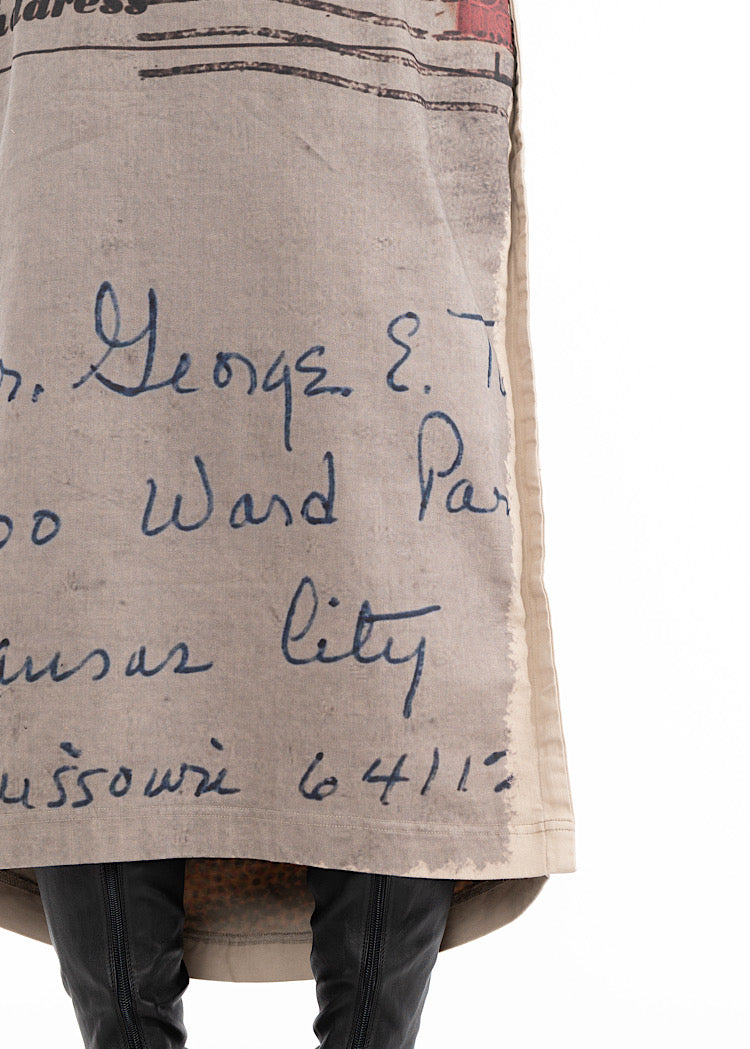 Address
r. George E. T
00 Ward Par
ansas City
issouri 6411